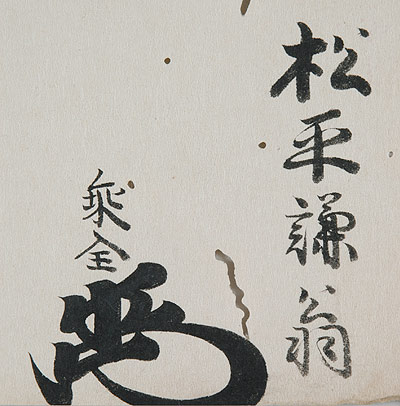 松平謙翁
乗全